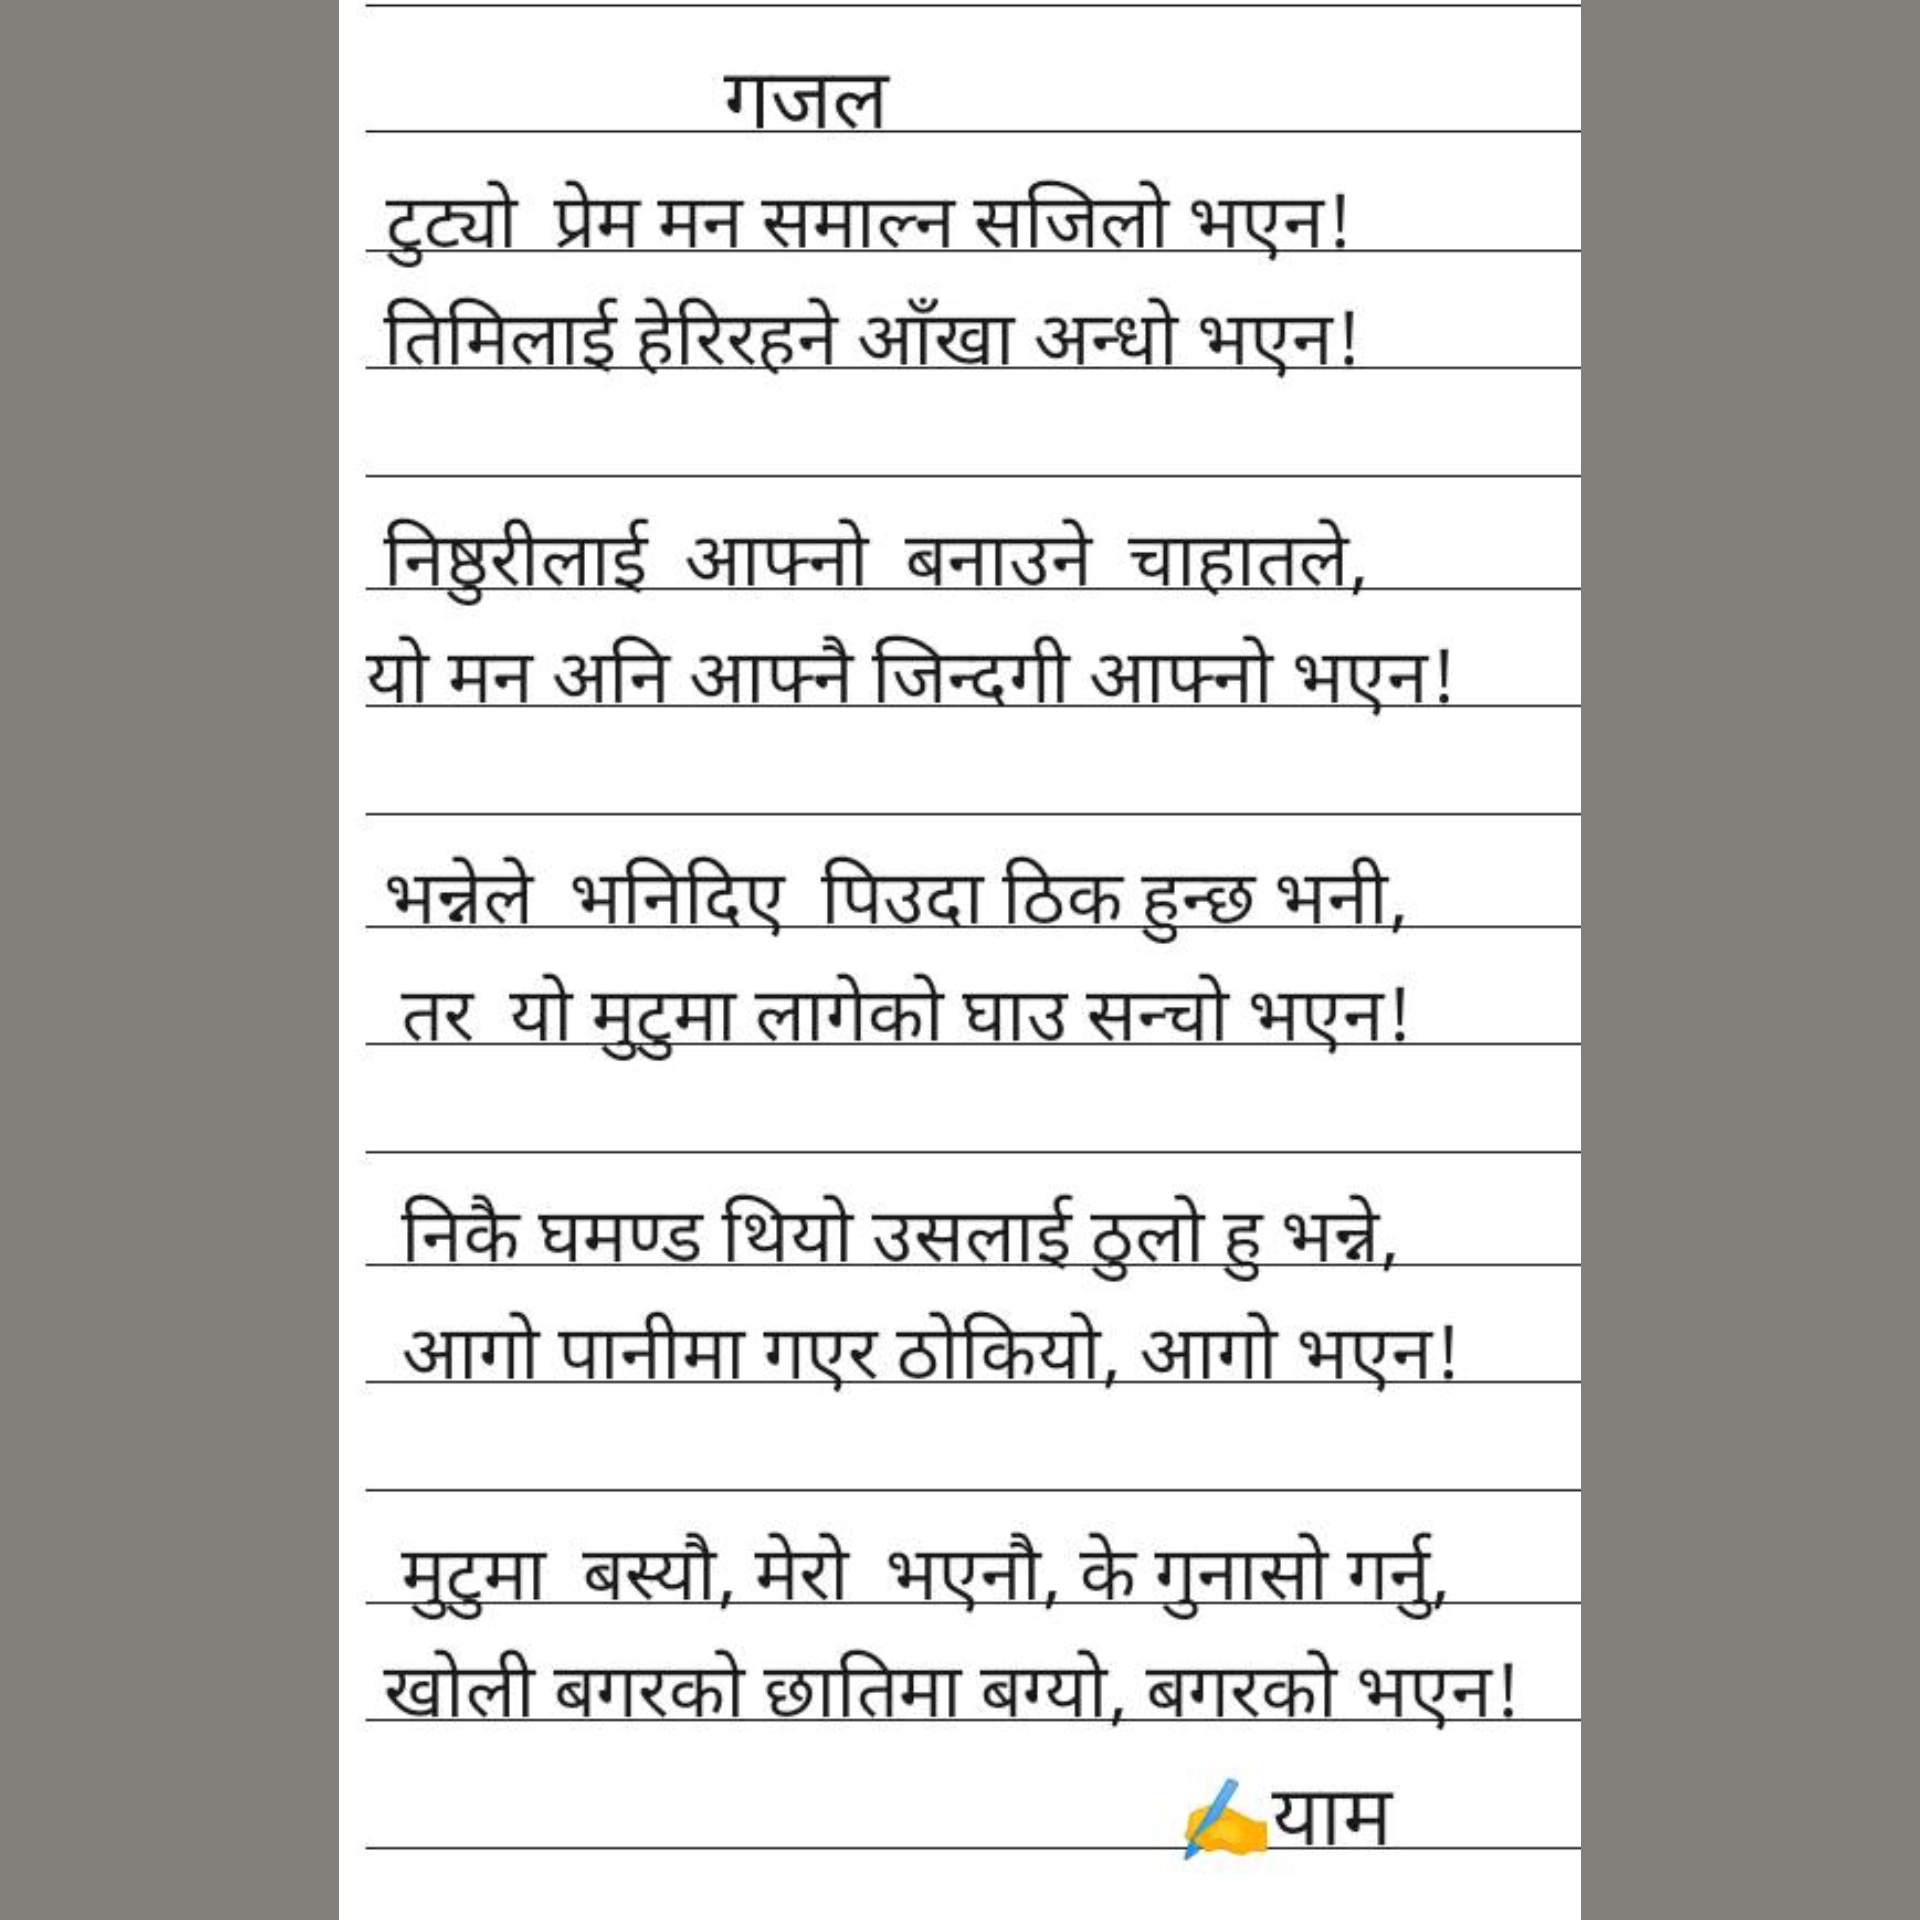 गजल
टुट्यो प्रेम मन समाल्न सजिलो भएन!
तिमिलाई हेरिरहने आँखा अन्धो भएन!
निष्ठुरीलाई आफ्नो बनाउने चाहातले,
यो मन अनि आफ्नै जिन्दगी आफ्नो भएन!
भन्नेले भनिदिए पिउदा ठिक हुन्छ भनी,
तर यो मुटुमा लागेको घाउ सन्चो भएन!
निकै घमण्ड थियो उसलाई ठुलो हु भन्ने,
आगो पानीमा गएर ठोकियो, आगो भएन!
मुटुमा बस्यौ, मेरो भएनौ, के गुनासो गर्नु,
खोली बगरको छातिमा बग्यो, बगरको भएन!
✍️याम